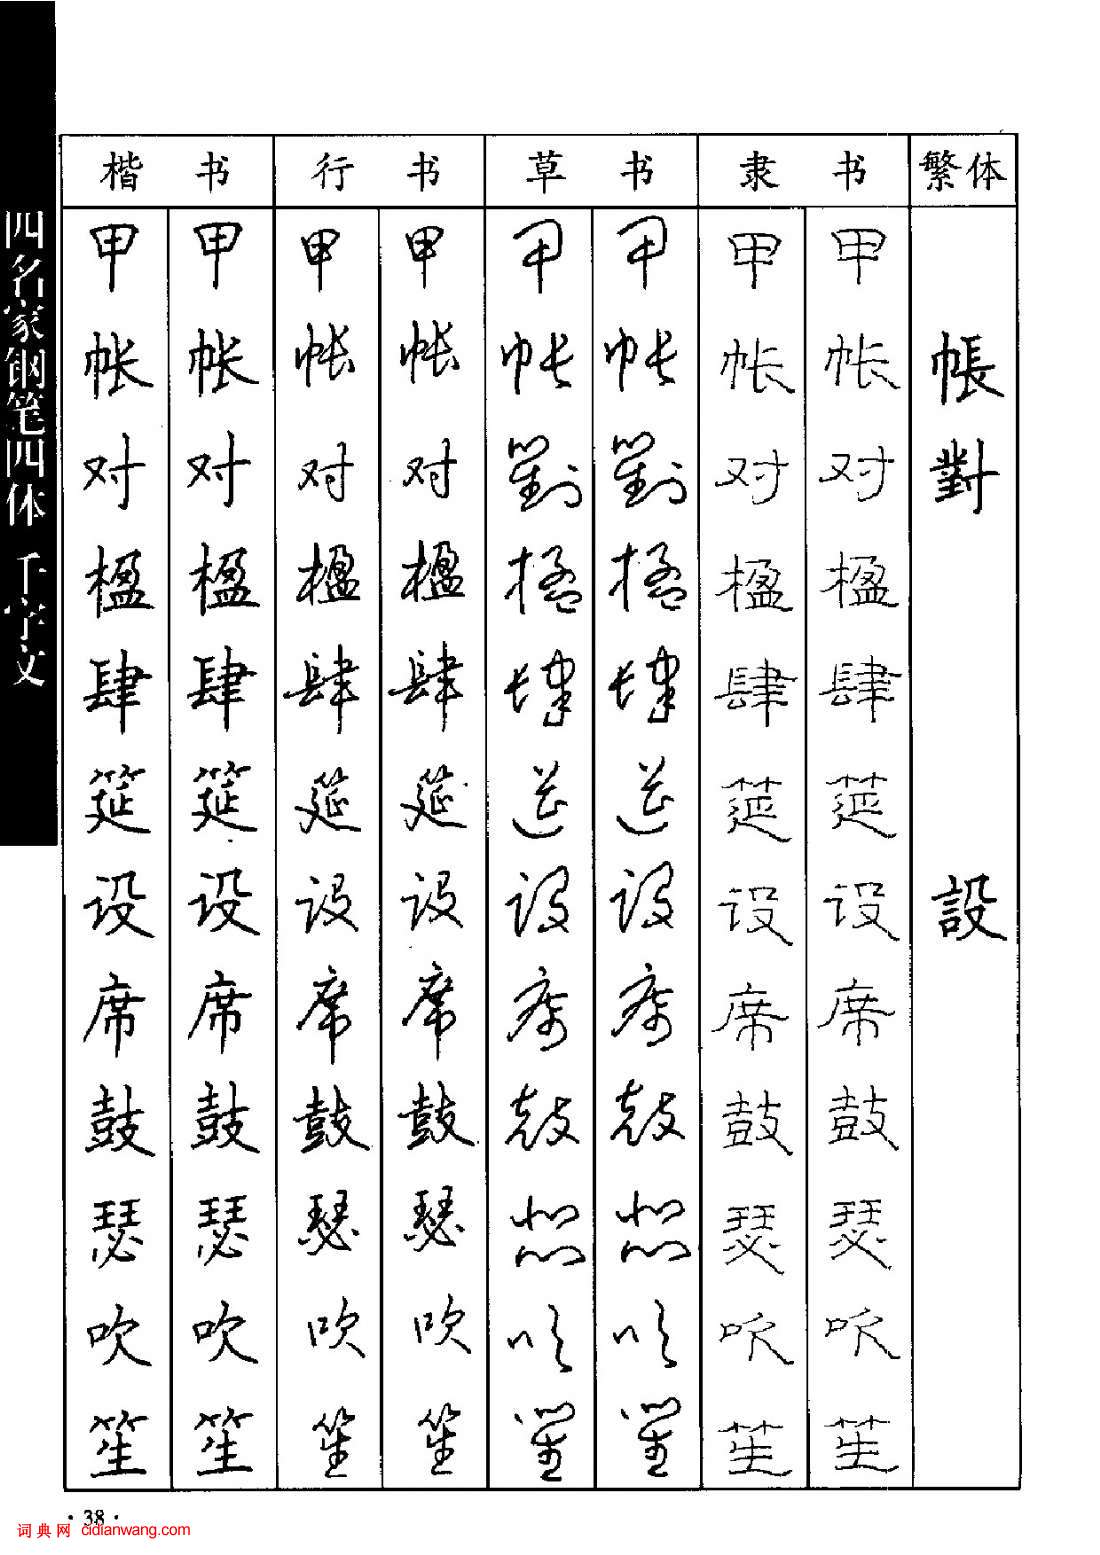 四名家钢笔四体 千字文
楷书 行书 草书 隶书 繁体
甲 甲 甲 甲 甲 甲 甲 甲
帐 帐 帐 帐 帐 帐 帐 帐 帳
对 对 对 对 對 對 对 对 對
楹 楹 楹 楹 楹 楹 楹 楹
肆 肆 肆 肆 肆 肆 肆 肆
筵 筵 筵 筵 筵 筵 筵 筵
设 设 设 设 设 设 设 设 設
席 席 席 席 席 席 席 席
鼓 鼓 鼓 鼓 鼓 鼓 鼓 鼓
瑟 瑟 瑟 瑟 瑟 瑟 瑟 瑟
吹 吹 吹 吹 吹 吹 吹 吹
笙 笙 笙 笙 笙 笙 笙 笙
·38·
词典网 cidianwang.com